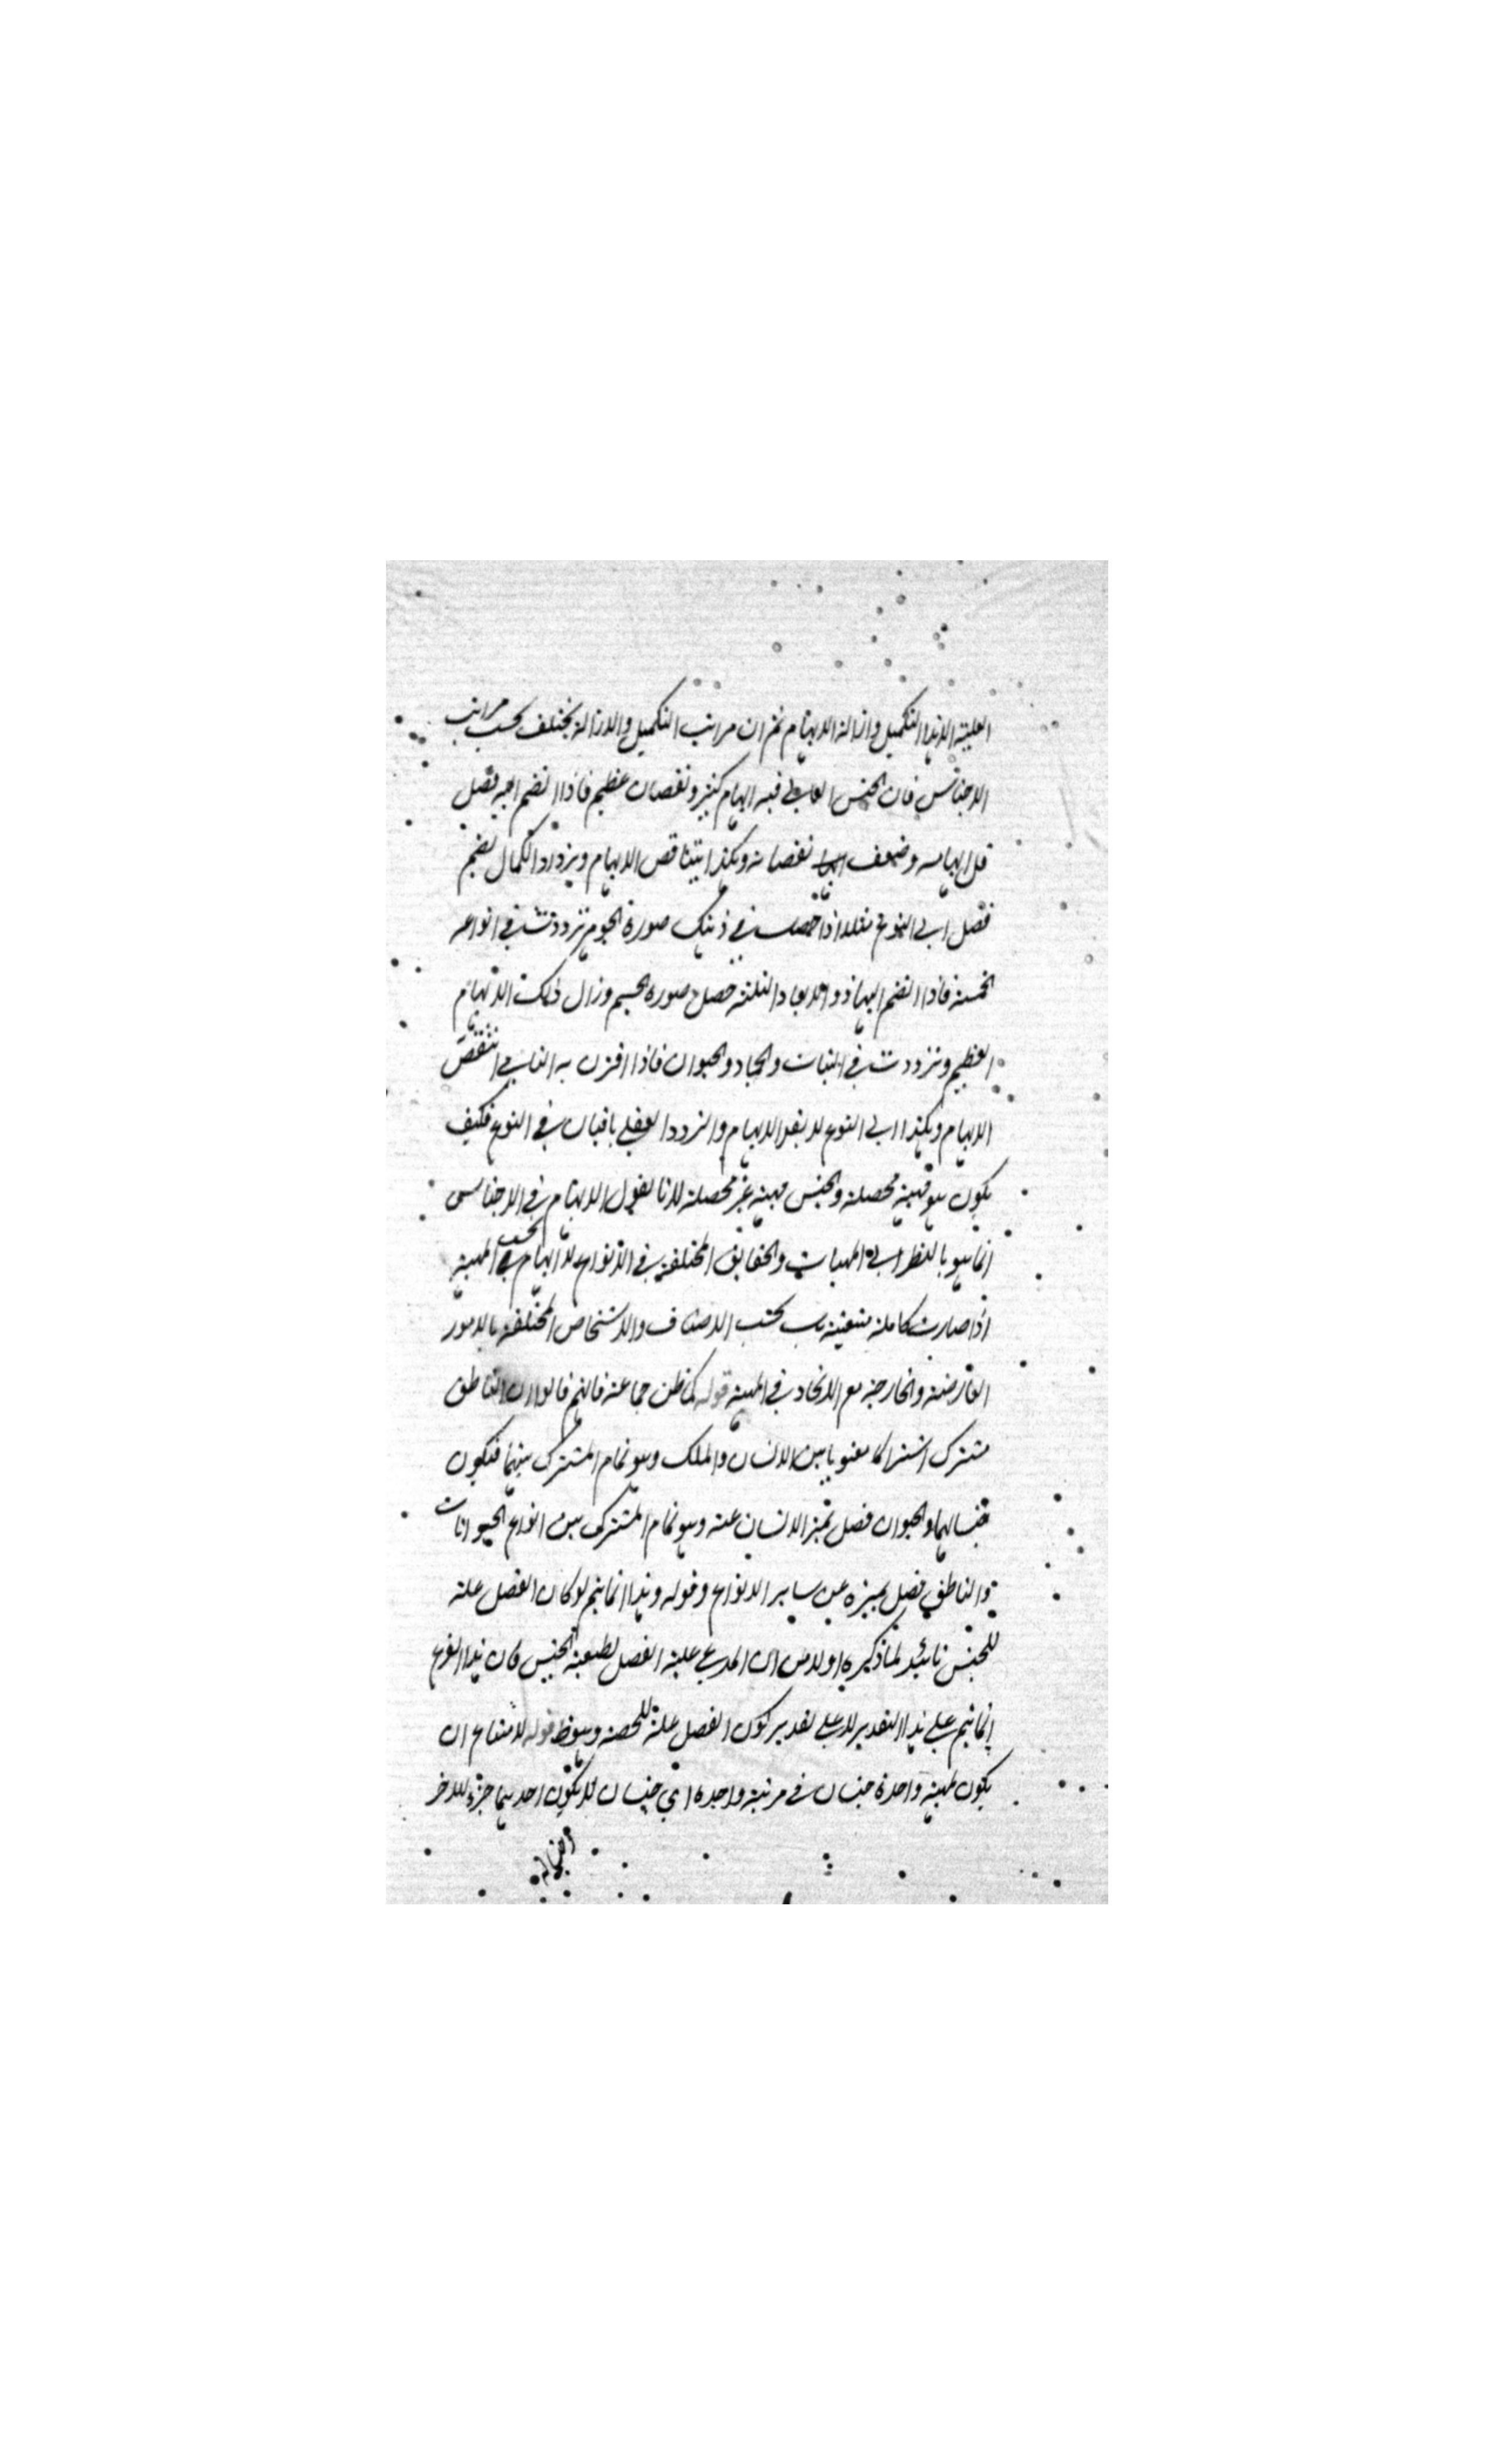 العلية الا هذا التكميل وازالة الابهام ثم ان مراتب التكميل والازالة يختلف بحسب مراتب
الاجناس فان الجنس العالي فيه ابهام كثير ونقصان عظيم فاذا انضم اليه فصل
قل ابهامه وضعف نقصانه وهكذا يتناقص الابهام ويزداد الكمال بضم
فصل الى النوع مثلا اذا حصلت في ذهنك صورة الجوهر ترددت في انواعه
الخمسة فاذا انضم اليها ذو الابعاد الثلثة حصل صورة الجسم وزال ذلك الابهام
العظيم وترددت في النبات والجماد والحيوان فاذا اقترن به النامي انتقص
الابهام وهكذا الى النوع لا يقال الابهام والتردد العقلي باقيان في النوع فكيف
يكون هو مهية محصلة والجنس مهية غير محصلة لانا نقول الابهام في الاجناس
انما هو بالنظر الى المهيات والحقايق المختلفة في الانواع لا ابهام بحسب المهية
اذا صارت كاملة متعينة بل بحسب الاصناف والاشخاص المختلفة بالامور
العارضة والخارجة مع الاتحاد في المهية قوله كما ظن جماعة فانهم قالوا ان الناطق
مشترك اشتراكا معنويا بين الانسان والملك وهو تمام المشترك بينهما فيكون
جنسا لهما والحيوان فصل تميز الانسان عنه وهو تمام المشترك بين انواع الحيوانات
والناطق فصل يميزه عن ساير الانواع وقوله وهذا انما يتم لو كان الفصل علة
للجنس تائيد لما ذكره اولا من ان المدعي علية الفصل لطبيعة الجنس فان هذا الفرع
انما يتم على هذا التقدير لا على تقدير كون الفصل علة للحصة وهو ظ قوله لامتناع ان
يكون لمهية واحدة جنسان في مرتبة واحدة اي جنسان لا يكون احدهما جزء للاخر